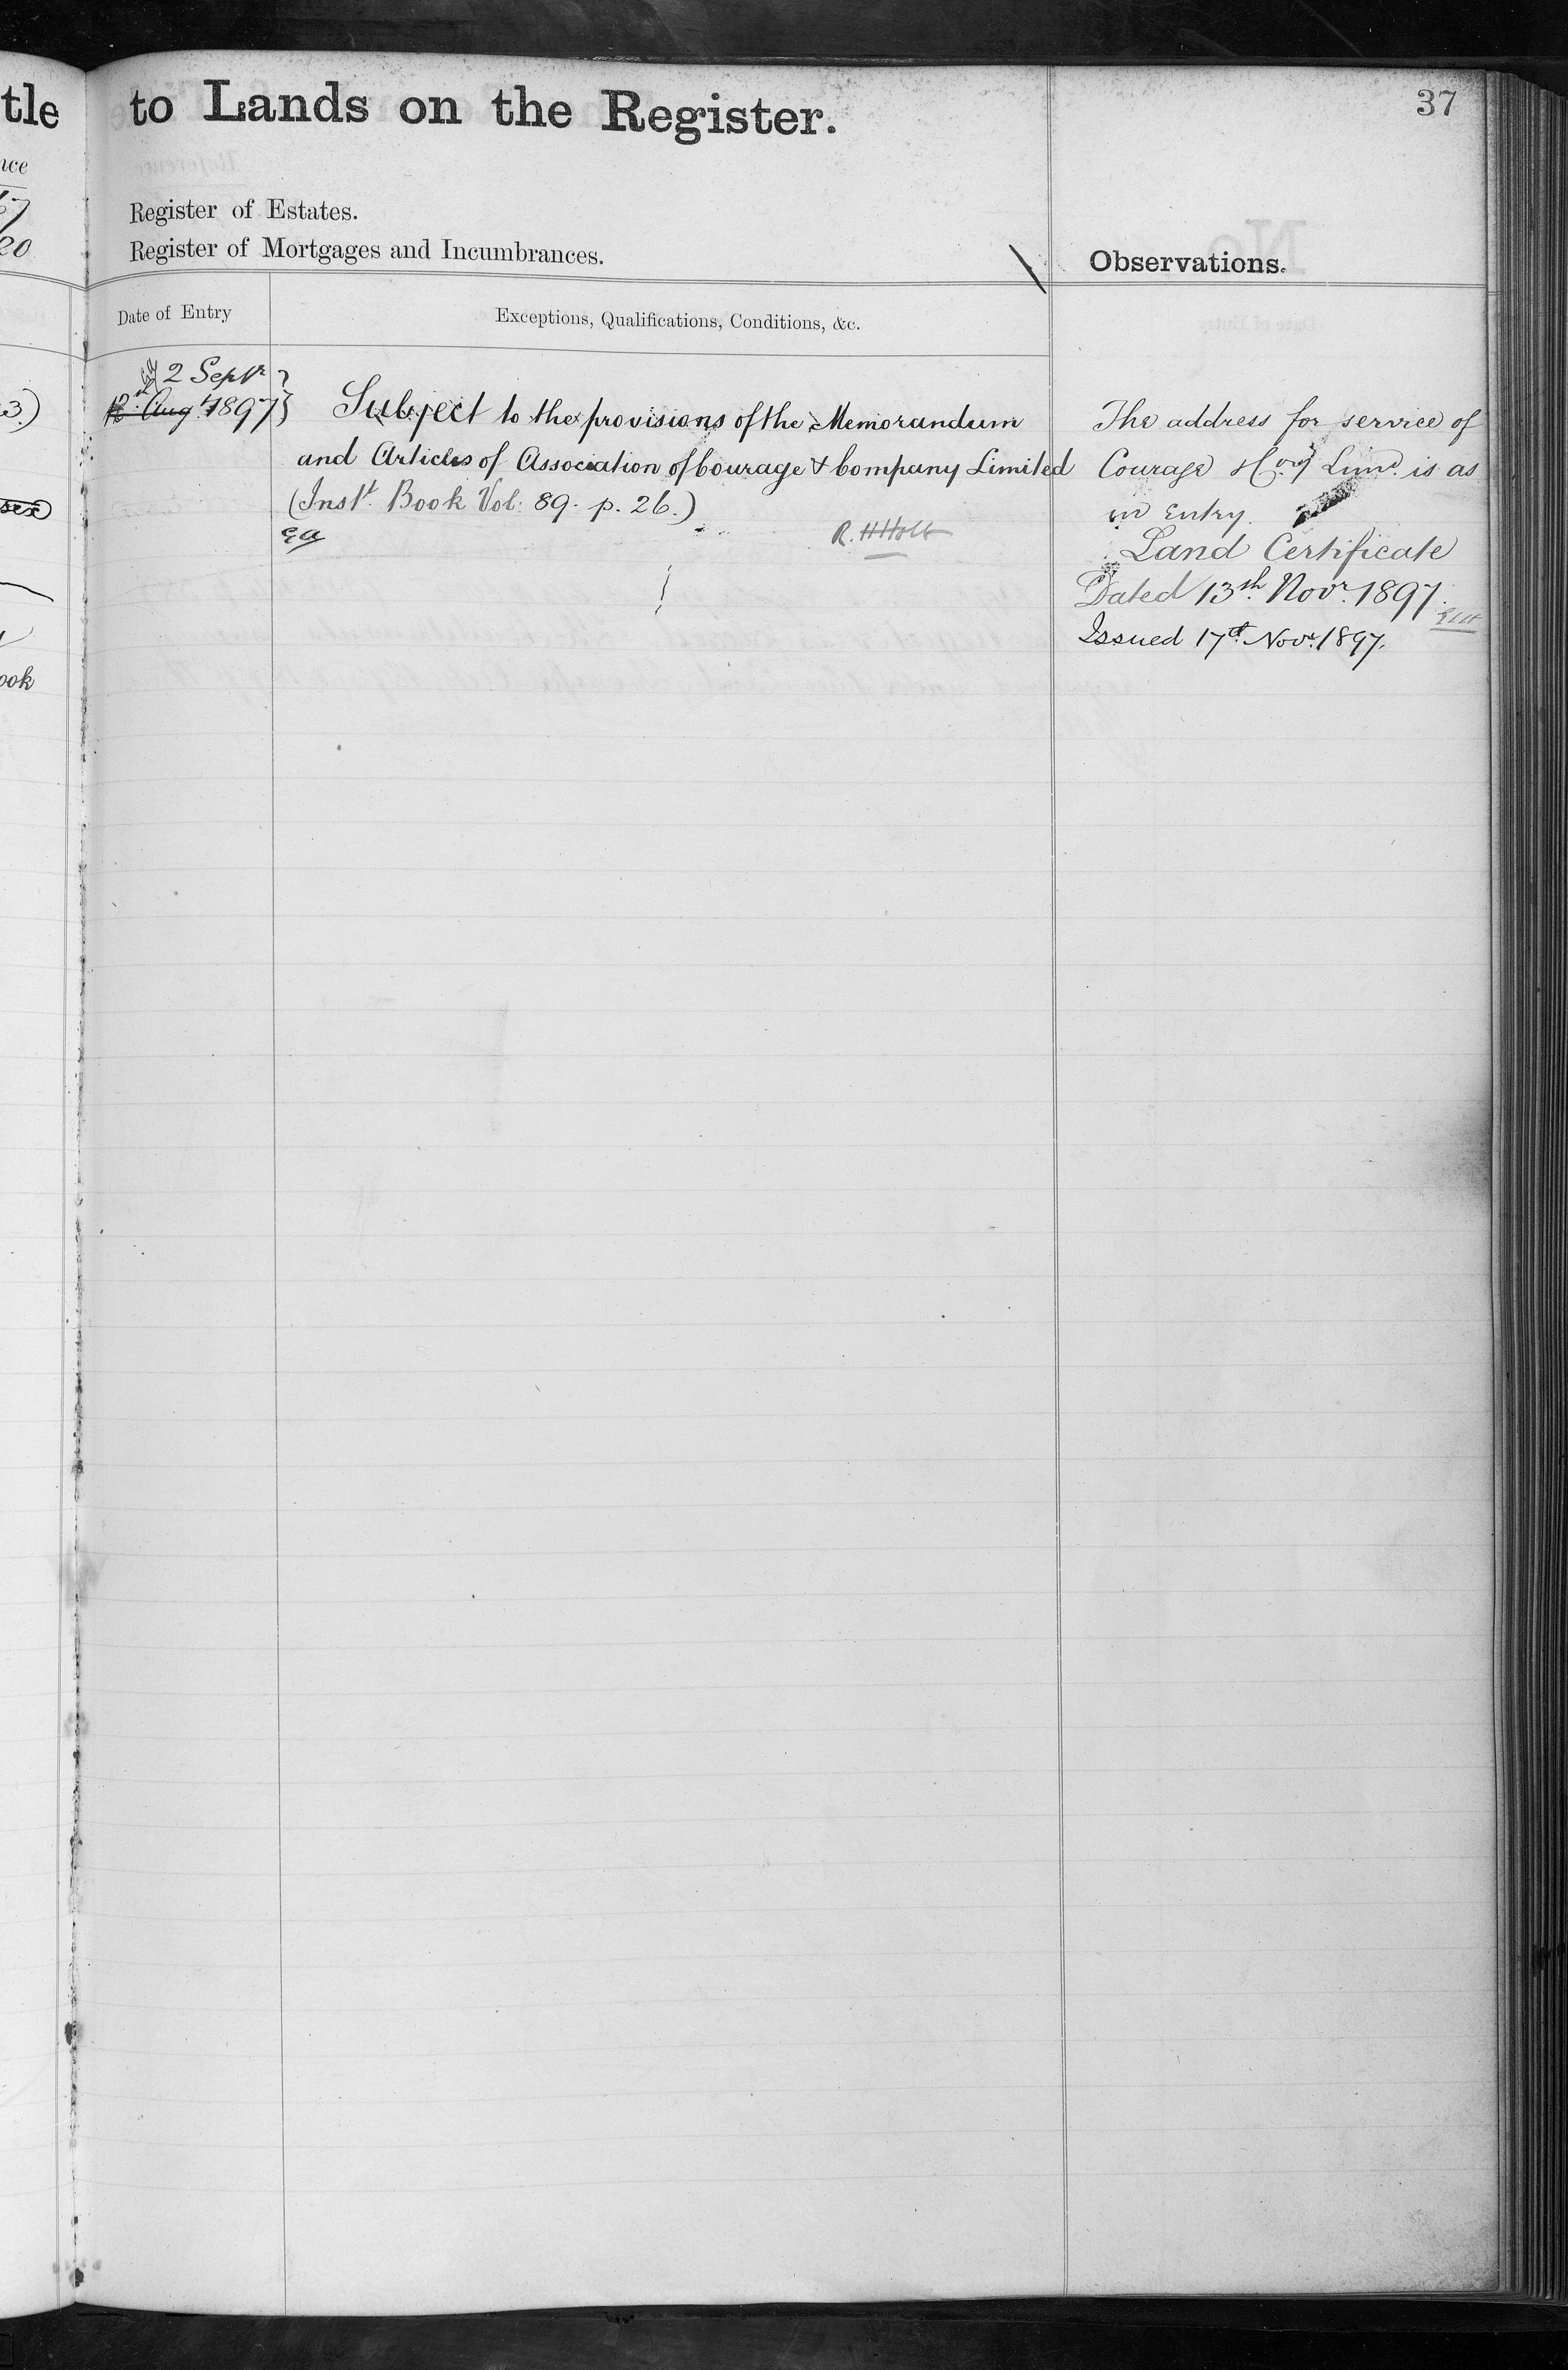 tle
to Lands on the Register.
37
Register of Estates.
Register of Mortgages and Incumbrances.
Observations.
Date of Entry
Exceptions, Qualifications, Conditions, &c.
2 Septr
Augt 1897
Subject to the provisions of the Memorandum
and Articles of Association of Courage & Company Limited
(Inst. Book Vol: 89. p. 26.)
R. H Holt
The address for service of
Courage & Coy Limd. is as
in Entry.
Land Certificate
Dated 13th Novr. 1897.
Issued 17th Novr. 1897.
ook